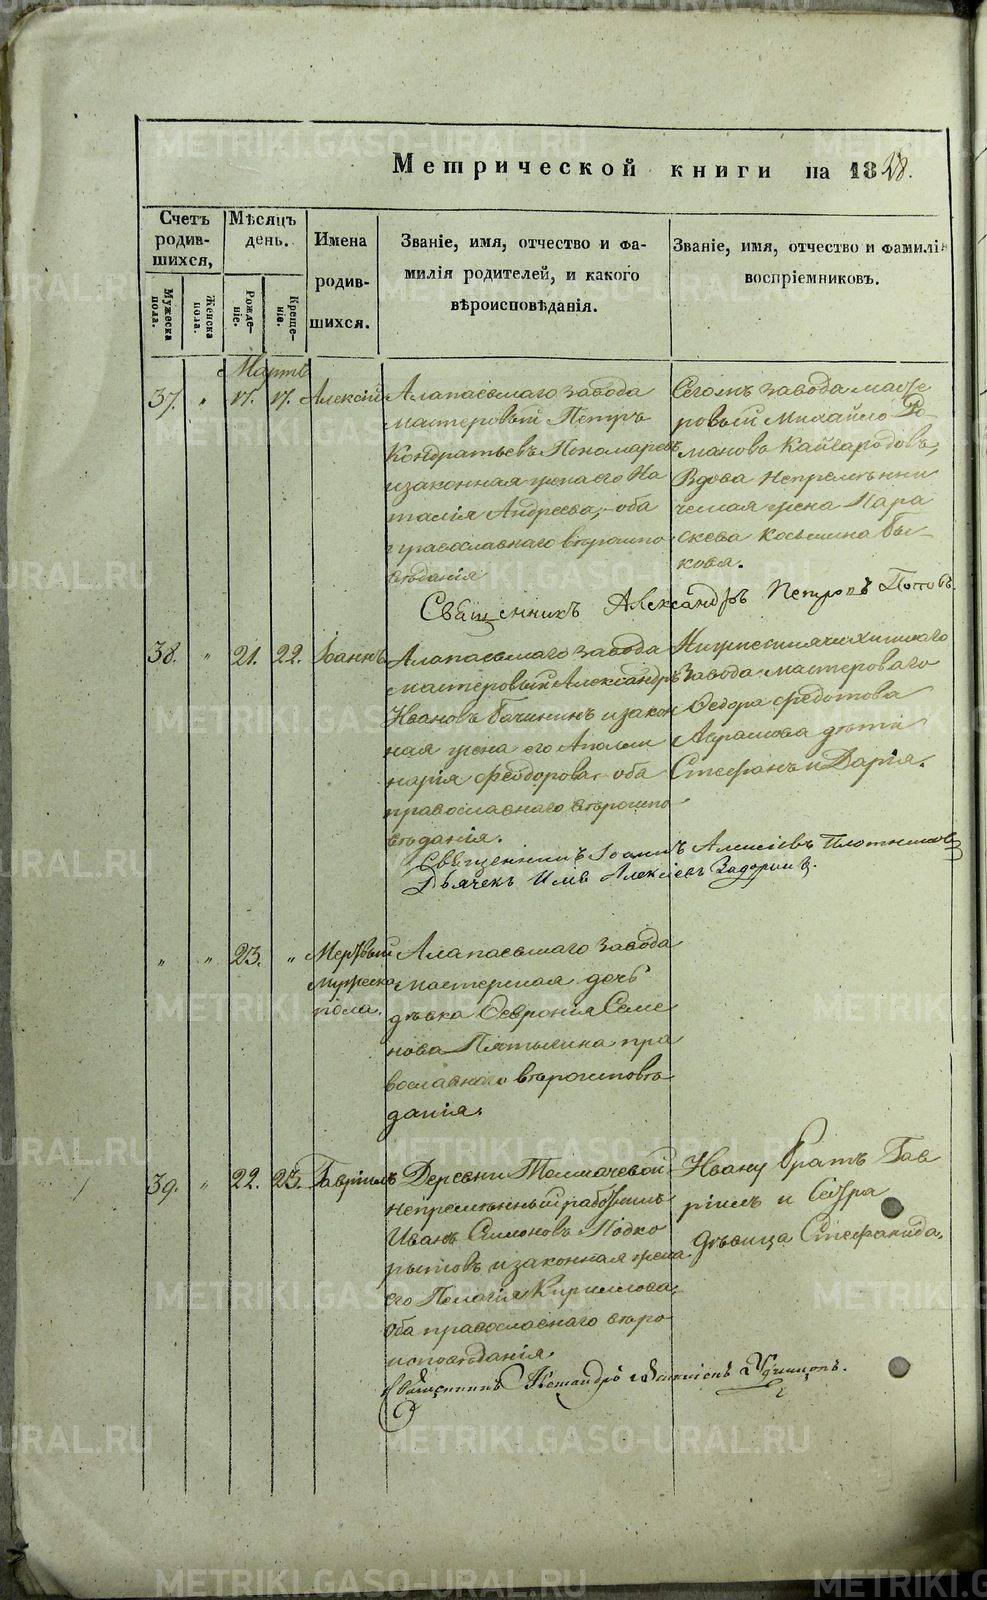 Метрической книги на 1838.
Счетъ родив-шихся,
Мѣсяцъ день.
Имена родив-шихся.
Званіе, имя, отчество и фа-
милія родителей, и какого
вѣроисповѣданія.
Званіе, имя, отчество и фамилія
воспріемниковъ.
Мужеска пола.
Женска пола.
Рожде-ніе.
Креще-ніе.
Мартъ
37. " 17. 17. Алексій
Алапаевскаго завода
мастеровый Петръ
Кондратьевъ Пономаревъ
и законная жена его На
талія Андреева, оба
православнаго вѣроиспо
вѣданія
Сегожъ завода масте
ровый Михайло Ро-
мановъ Кайгородовъ,
Вдова Непремѣнни
ческая жена Пара
скева Косьмина Бы-
кова.
Священникъ Александръ Петровъ Поповъ
38. " 21. 22. Іоаннъ
Алапаевскаго завода
мастеровый Александръ
Ивановъ Бачининъ и закон
ная жена его Аполли
нарія Феодорова, оба
православнаго вѣроиспо
вѣданія.
завода мастероваго
Федора Федотова
Абрамова дѣти
Стефанъ и Дарія.
Священникъ Іоаннъ Алексіевъ Плотниковъ
Дьячекъ Илія Алексіевъ
" " 23. " Мертвый
мужеска
пола.
Алапаевскаго завода
мастерская дочь
дѣвка Февронія Семе
нова Пятыгина пра
вославнаго вѣроисповѣ
данія.
39. " 22. 23. Гавріилъ
Деревни Толмачевой
непремѣнный работникъ
Иванъ Симоновъ Подко
рытовъ и законная жена
его Пелагія Кириллова,
оба православнаго вѣро
исповѣданія.
Ивану братъ Гав
ріилъ и Сестра
дѣвица Стефанида.
Священникъ